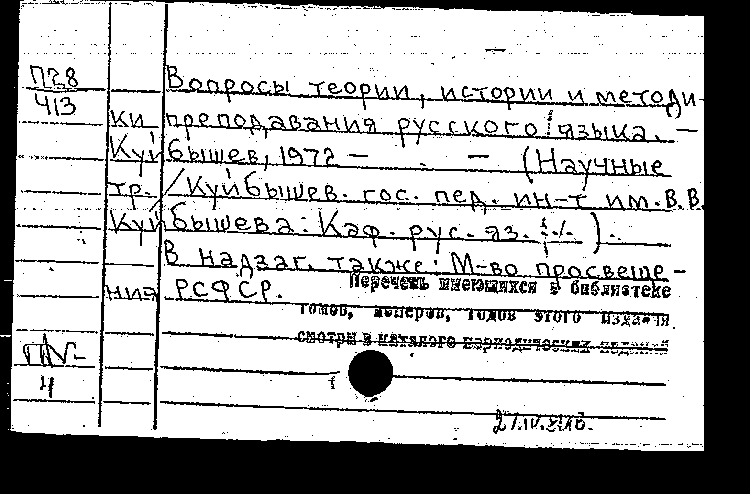 П28
413
Вопросы теории, истории и методи-
ки преподавания русского языка. —
Куйбышев, 1972 — . — (Научные
тр. / Куйбышев. гос. пед. ин-т им. В.В.
Куйбышева: Каф. рус. яз. ).
В надзаг. также: М-во просвеще-
ния РСФСР.
Перечень имеющихся в библиотеке
томов, номеров, годов этого издания
смотри в каталоге периодических изданий
4